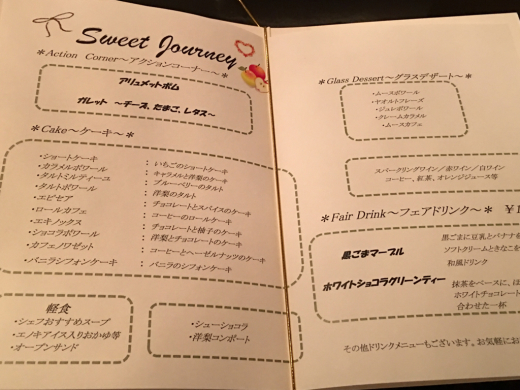 Sweet Journey
＊Action Corner～アクションコーナー～＊
アリュメットポム
ガレット ～チーズ、たまご、レタス～
＊Cake～ケーキ～＊
・ショートケーキ : いちごのショートケーキ
・カラメルポワール : キャラメルと洋梨のケーキ
・タルトミルティーユ : ブルーベリーのタルト
・タルトポワール : 洋梨のタルト
・エピセア : チョコレートとスパイスのケーキ
・ロールカフェ : コーヒーのロールケーキ
・エキノックス : チョコレートと柚子のケーキ
・ショコラポワール : 洋梨とチョコレートのケーキ
・カフェノワゼット : コーヒーとヘーゼルナッツのケーキ
・バニラシフォンケーキ : バニラのシフォンケーキ
軽食
・シェフおすすめスープ
・エノキアイス入りおかゆ等
・オープンサンド
・シューショコラ
・洋梨コンポート
＊Glass Dessert～グラスデザート～＊
・ムースポワール
・ヤオルトフレーズ
・ジュレポワール
・クレームカラメル
・ムースカフェ
スパークリングワイン／赤ワイン／白ワイン
コーヒー、紅茶、オレンジジュース等
＊Fair Drink～フェアドリンク～＊ ￥1
黒ごまマーブル 黒ごまに豆乳とバナナを
ソフトクリームときなこを
和風ドリンク
ホワイトショコラグリーンティー 抹茶をベースに、ほ
ホワイトチョコレート
合わせた一杯
その他ドリンクメニューもございます。お気軽にお